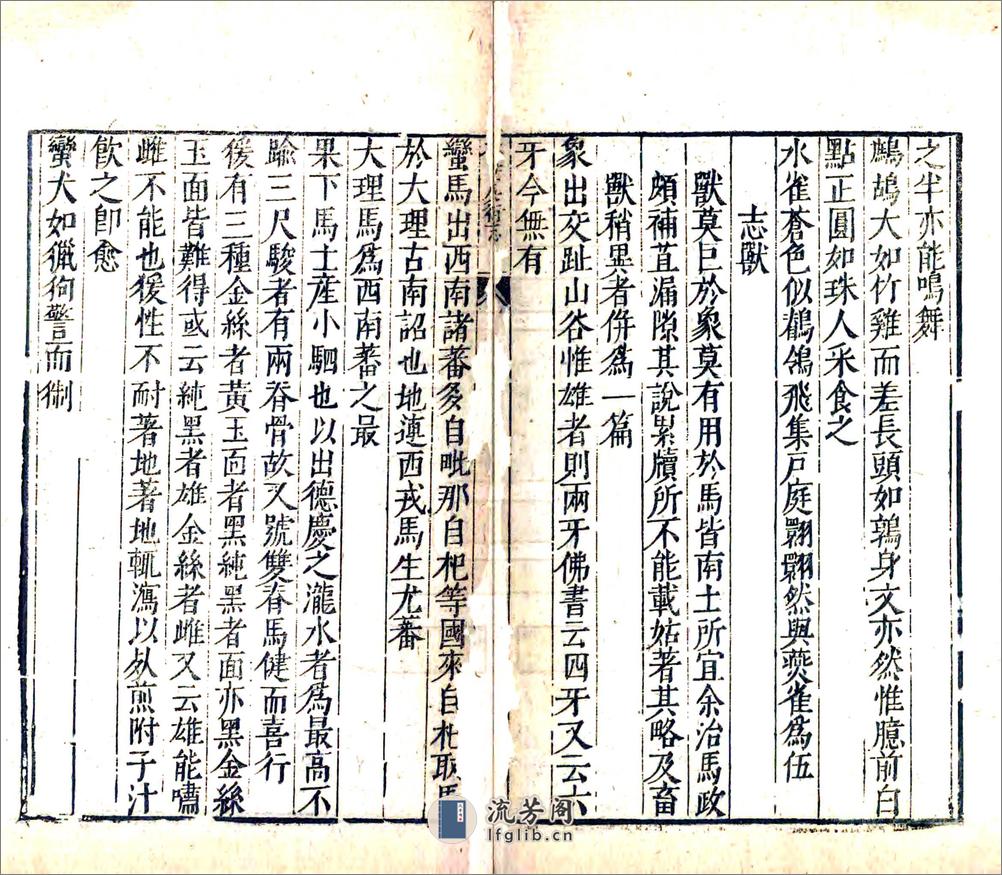 之半亦能鳴舞
鷓鴣大如竹雞而差長頭如鶉身文亦然惟臆前白
點正圓如珠人采食之
水雀蒼色似鶺鴒飛集戸庭翾翾然與燕雀爲伍
志獸
獸莫巨於象莫有用於馬皆南土所宜余治馬政
頗補苴漏隙其說累牘所不能載姑著其略及畜
獸稍異者併爲一篇
象出交趾山谷惟雄者則兩牙佛書云四牙又云六
牙今無有
蠻馬出西南諸蕃多自毗那自杞等國來自杞取馬
於大理古南詔也地連西戎馬生尤蕃
大理馬爲西南蕃之最
果下馬土産小駟也以出德慶之瀧水者爲最高不
踰三尺駿者有兩脊骨故又號雙脊馬健而喜行
猨有三種金絲者黃玉面者黑純黑者面亦黑金絲
玉面皆難得或云純黑者雄金絲者雌又云雄能嘯
雌不能也猨性不耐著地著地輒瀉以死煎附子汁
飲之卽愈
蠻犬如獵狗警而猘
流芳阁
lfglib.cn